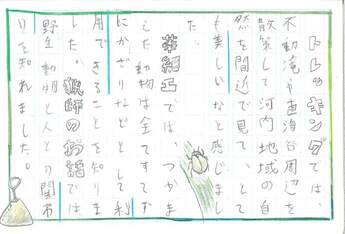 トレッキングでは、
不動滝や直海谷周辺を
散策して河内地域の自
然を間近で見て、とて
も美しいなと感じまし
た。
革細工では、つかま
えた動物は全てすてず
にかざりなどとして利
用できることを知りま
した。猟師のお話では
野生動物と人との関わ
りを知れました。